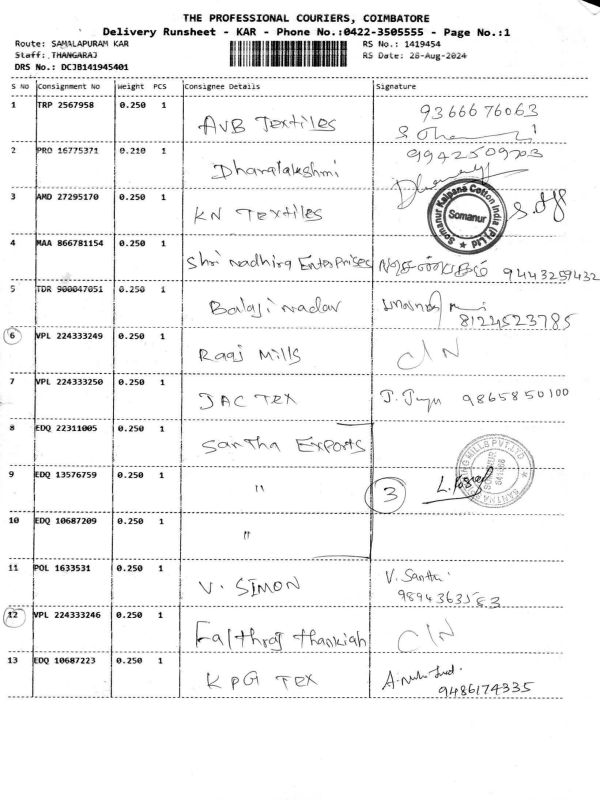 THE PROFESSIONAL COURIERS, COIMBATORE
Delivery Runsheet - KAR - Phone No.:0422-3505555 - Page No.:1
Route: SAMALAPURAM KAR RS No.: 1419454
Staff: THANGARAJ RS Date: 28-Aug-2024
DRS No.: DCJB141945401
S No Consignment No Weight PCS Consignee Details Signature
1 TRP 2567958 0.250 1 AVB Textiles 9366676063
2 PRO 16775371 0.210 1 Dharalakshmi 9942509703
3 AMD 27295170 0.250 1 KN Textiles
Somanur Kalpana Cotton India (P) Ltd
Somanur
4 MAA 866781154 0.250 1 Shri nadhira Enterprises 9443259432
5 TDR 900047051 0.250 1 Balaji nadar
8124523785
6 VPL 224333249 0.250 1 Raaj Mills C/N
7 VPL 224333250 0.250 1 JAC TEX 9865850100
8 EDQ 22311005 0.250 1 Santha Exports
9 EDQ 13576759 0.250 1 " 3
10 EDQ 10687209 0.250 1 "
11 POL 1633531 0.250 1 V. SIMON V. Santhi
9894363583
12 VPL 224333246 0.250 1 thankiah C/N
13 EDQ 10687223 0.250 1 KPG TEX
9486174335